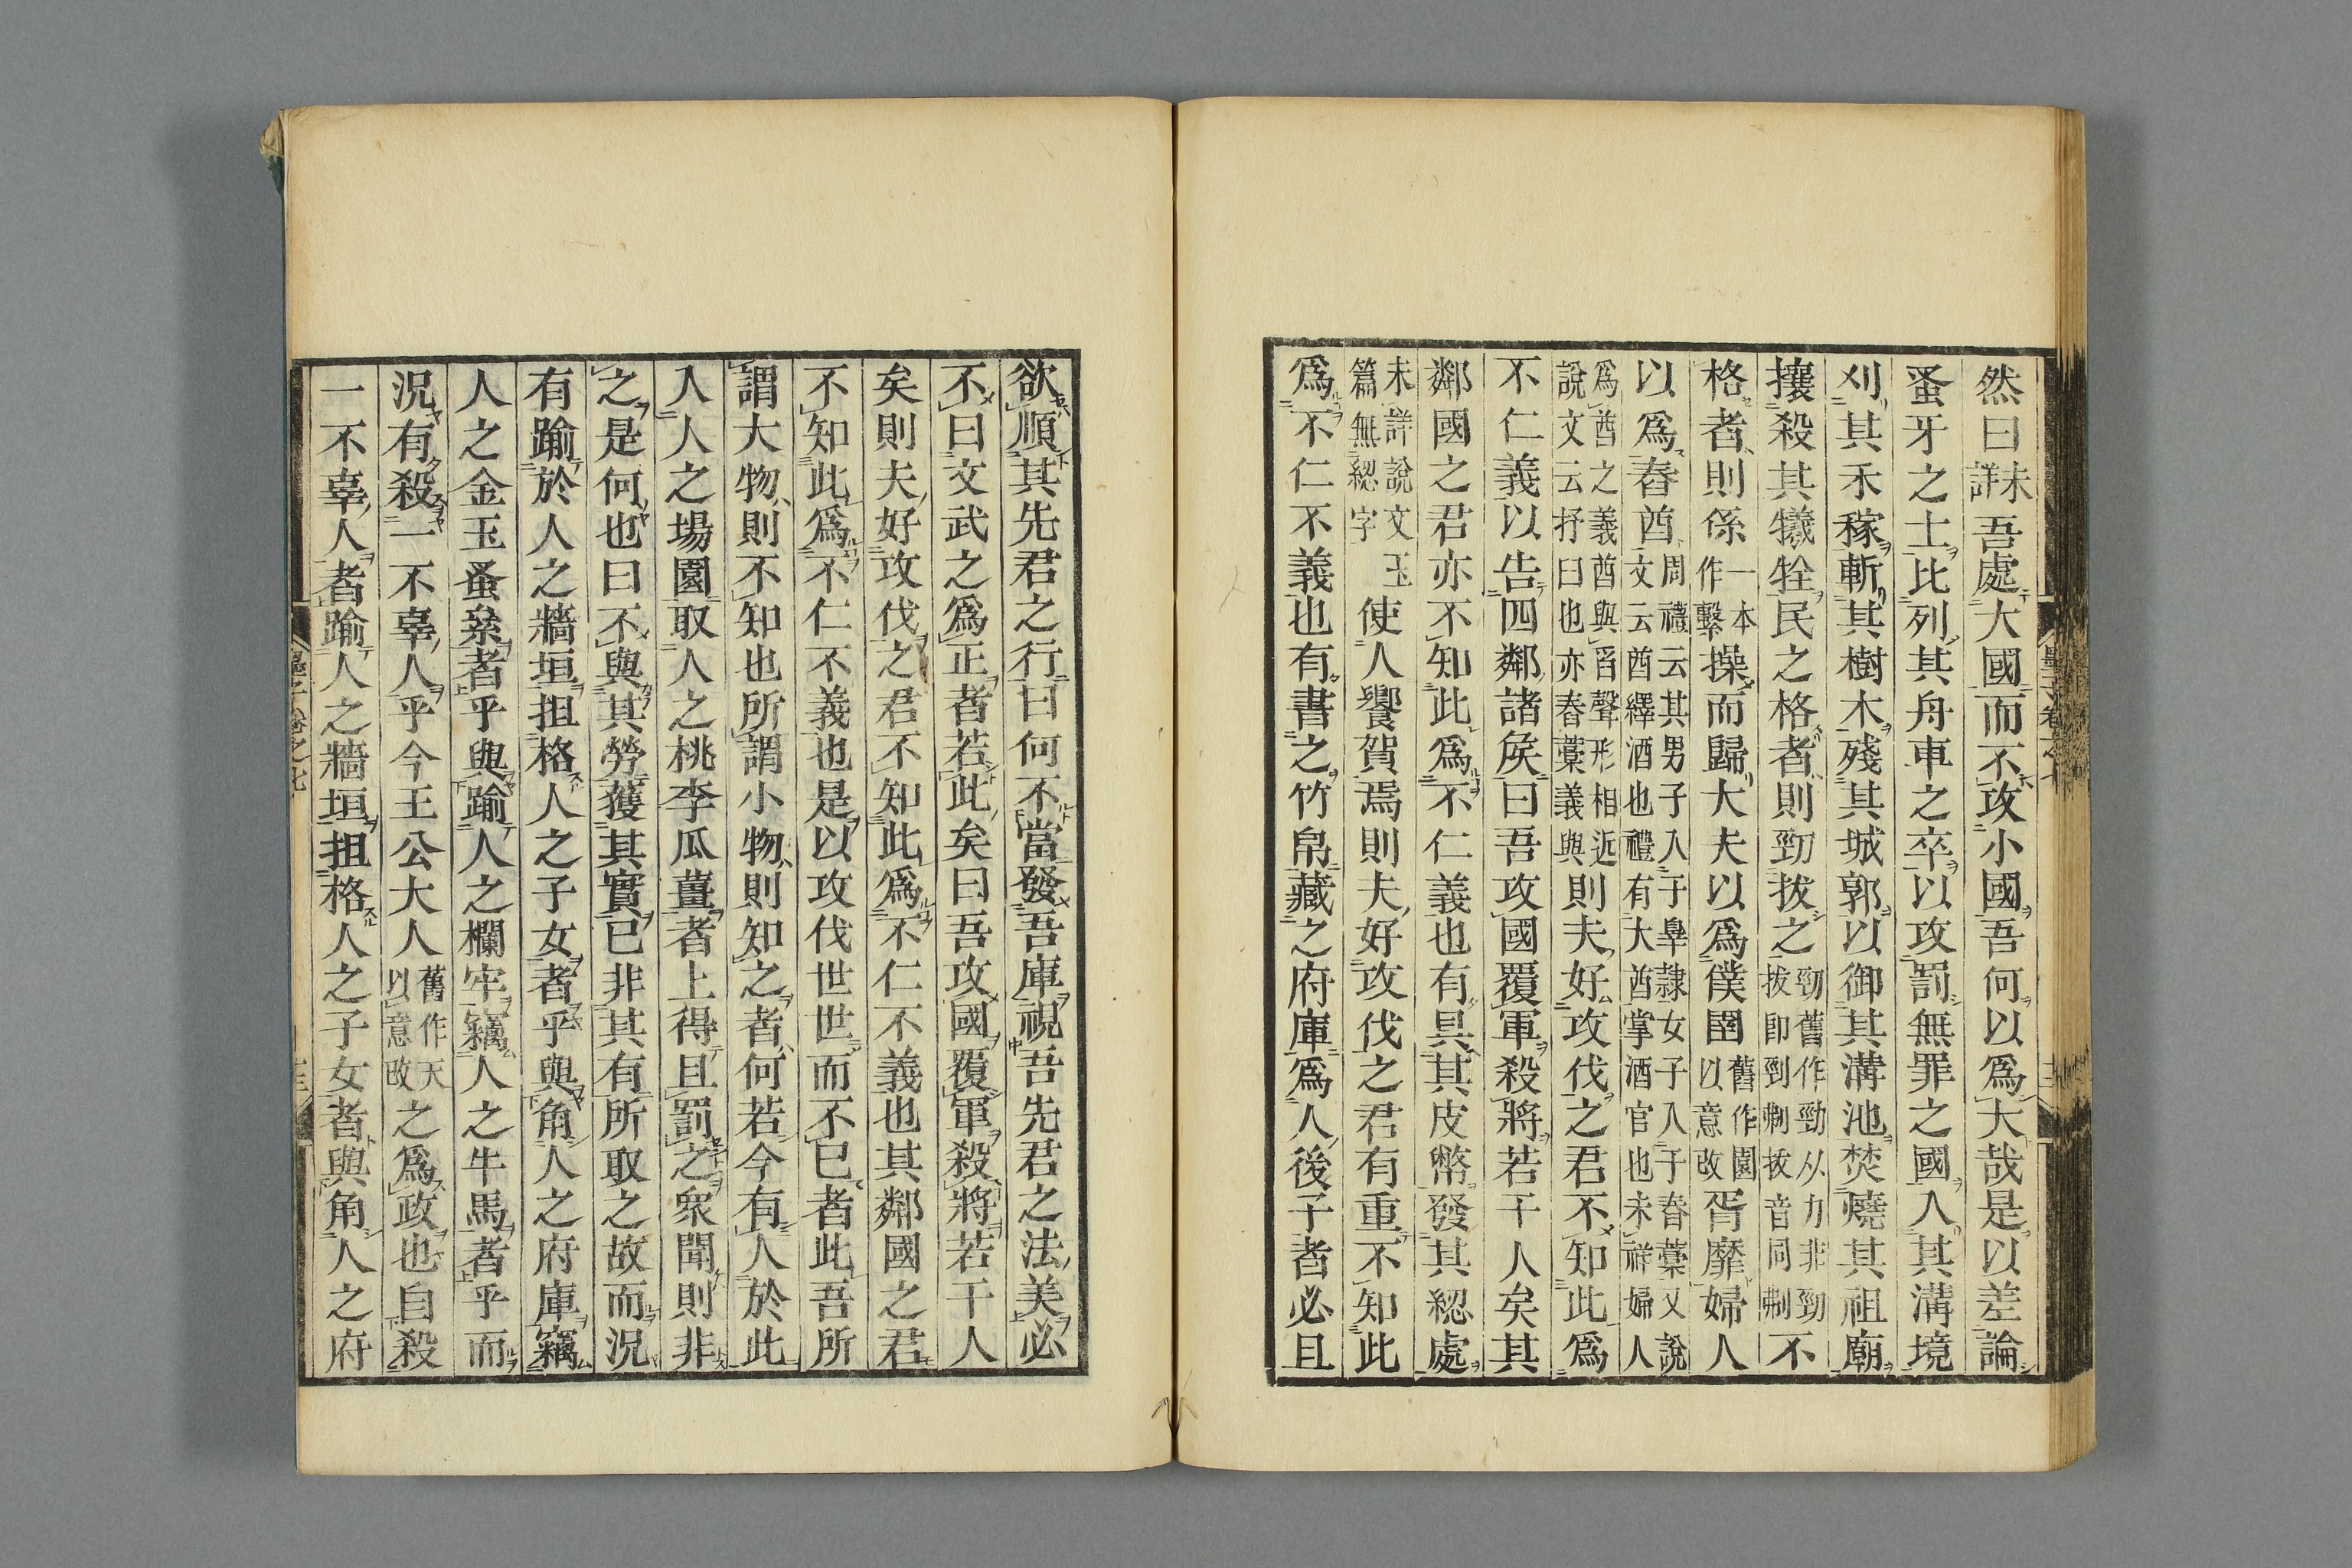 然曰未詳吾處大國而不攻小國吾何以爲大哉是以差論
蚤牙之士比列其舟車之卒以攻罰無罪之國入其溝境
刈其禾稼斬其樹木殘其城郭以御其溝池焚燒其祖廟
攘殺其犧牷民之格者則勁拔之勁舊作勁从力非勁拔卽剄剕拔音同剕不
格者則係一本作繫操而歸大夫以爲僕圉舊作園以意改胥靡婦人
以爲舂酋周禮云其男子入于皋隷女子入于舂藁又說文云酋繹酒也禮有大酋掌酒官也未詳婦人
爲酋之義酋與舀聲形相近說文云抒臼也亦舂藁義與則夫好攻伐之君不知此爲
不仁義以告四鄰諸矦曰吾攻國覆軍殺將若干人矣其
鄰國之君亦不知此爲不仁義也有具其皮幣發其綛處
未詳說文玉篇無綛字使人饗賀焉則夫好攻伐之君有重不知此
爲不仁不義也有書之竹帛藏之府庫爲人後子者必且
欲順其先君之行曰何不當發吾庫視吾先君之法美必
不曰文武之爲正者若此矣曰吾攻國覆軍殺將若干人
矣則夫好攻伐之君不知此爲不仁不義也其鄰國之君
不知此爲不仁不義也是以攻伐世世而不已者此吾所
謂大物則不知也所謂小物則知之者何若今有人於此
入人之場園取人之桃李瓜薑者上得且罰之衆聞則非
之是何也曰不與其勞獲其實已非其有所取之故而況
有踰於人之牆垣抯格人之子女者乎與角人之府庫竊
人之金玉蚤絫者乎與踰人之欄牢竊人之牛馬者乎而
況有殺一不辜人乎今王公大人舊作天以意改之爲政也自殺
一不辜人者踰人之牆垣抯格人之子女者與角人之府
墨子卷之七